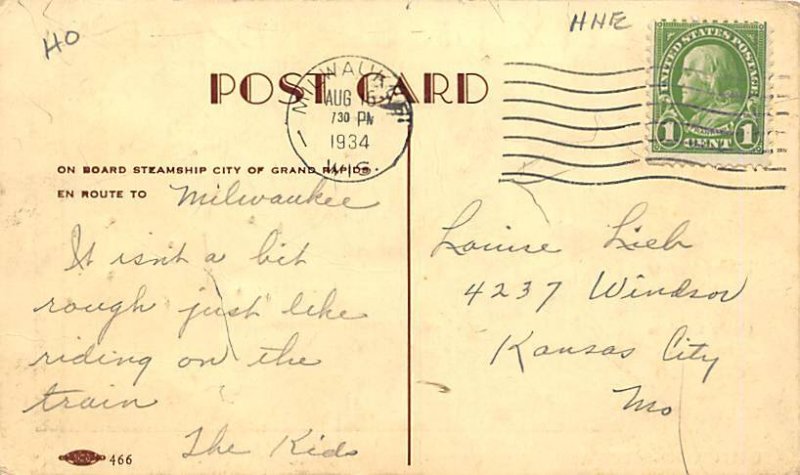 HO
HNE
POST CARD
MILWAUKEE
AUG 16
730 PM
1934
WIS.
UNITED STATES POSTAGE
FRANKLIN
1 CENT 1
ON BOARD STEAMSHIP CITY OF GRAND RAPIDS
EN ROUTE TO Milwaukee
It isnt a bit
rough just like
riding on the
train
The Kids
Louise Lieb
4237 Windsor
Kansas City
Mo
466